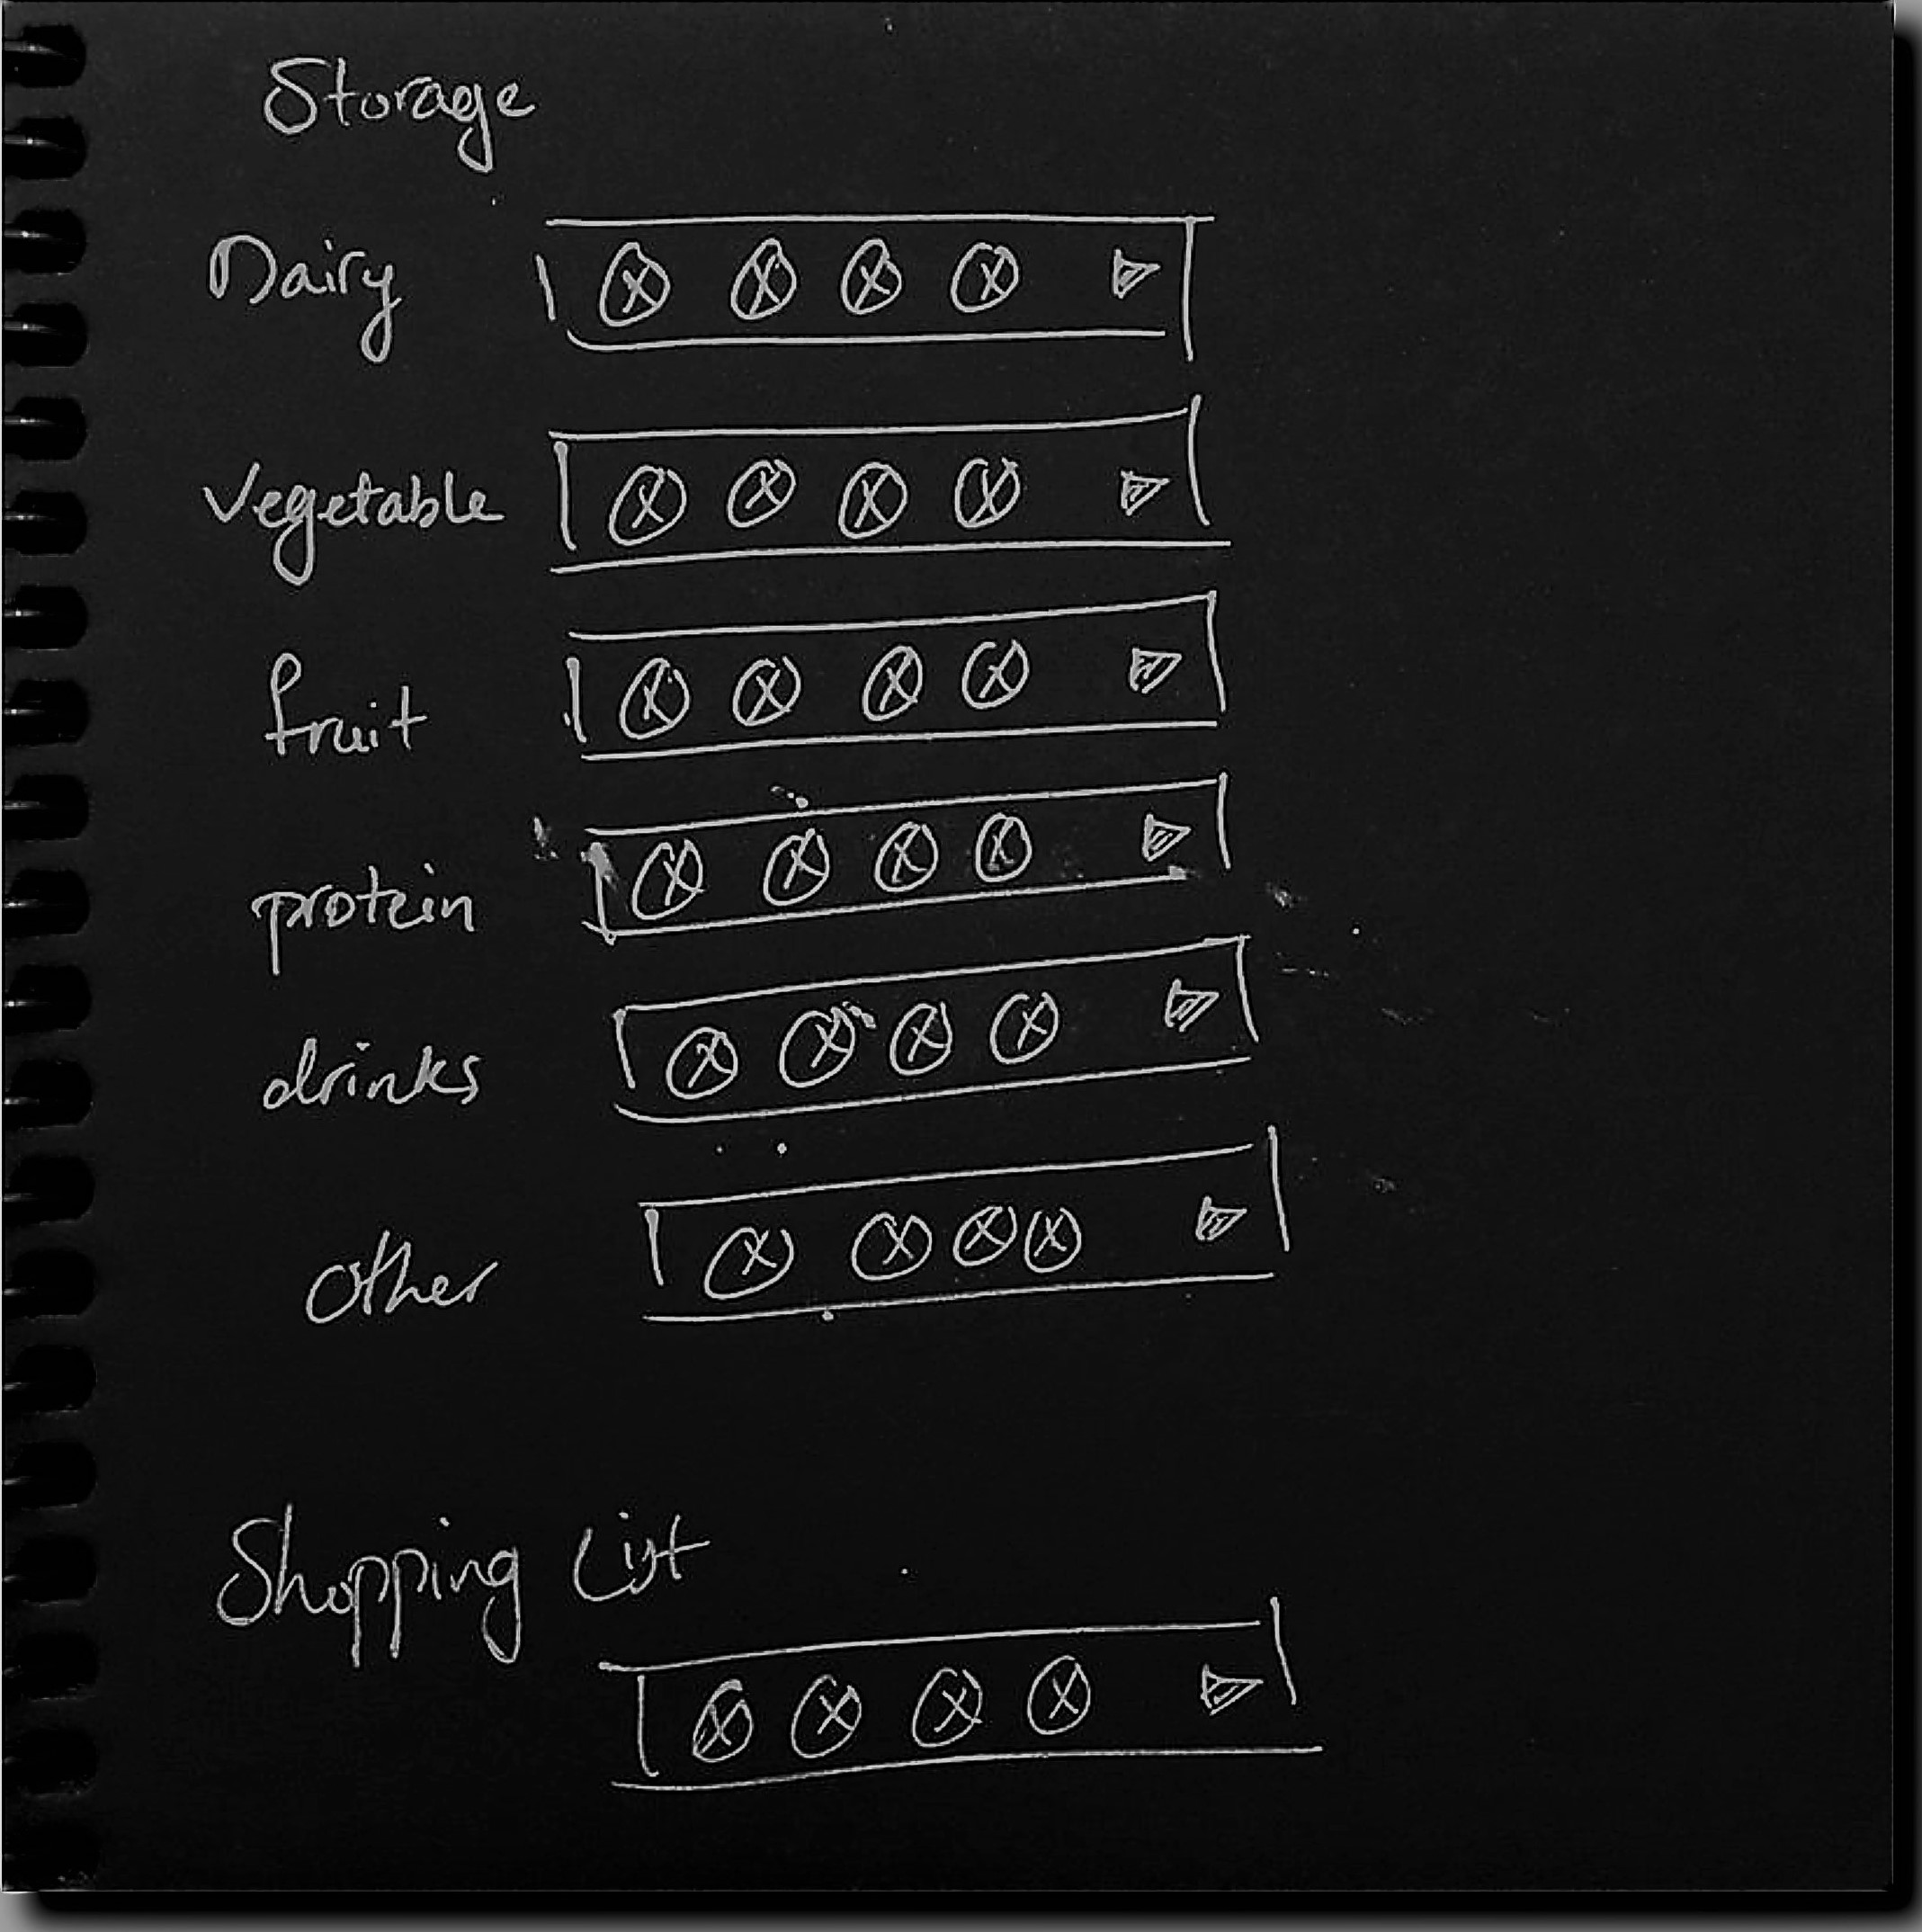 Storage
Dairy
vegetable
fruit
protein
drinks
other
Shopping List